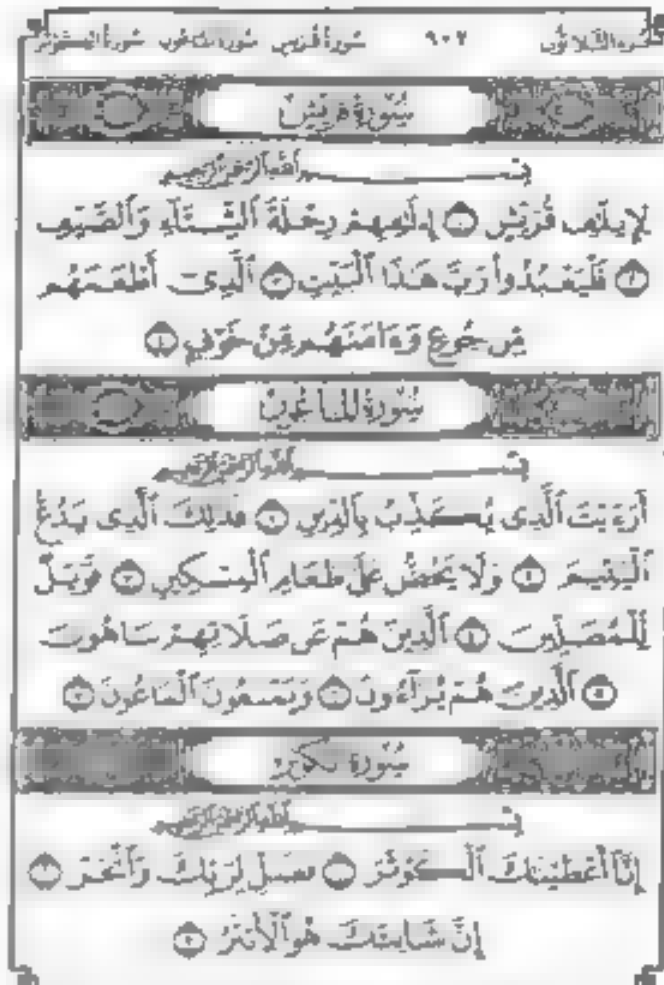 الجزء الثلاثون ٩٠٢ سورة قريش سورة الماعون سورة الكوثر
سورة قريش
بسم الله الرحمن الرحيم
لِإِيلَٰفِ قُرَيْشٍ ١ إِۦلَٰفِهِمْ رِحْلَةَ ٱلشِّتَآءِ وَٱلصَّيْفِ
٢ فَلْيَعْبُدُوا۟ رَبَّ هَٰذَا ٱلْبَيْتِ ٣ ٱلَّذِىٓ أَطْعَمَهُم
مِّن جُوعٍ وَءَامَنَهُم مِّنْ خَوْفٍۭ ٤
سورة الماعون
بسم الله الرحمن الرحيم
أَرَءَيْتَ ٱلَّذِى يُكَذِّبُ بِٱلدِّينِ ١ فَذَٰلِكَ ٱلَّذِى يَدُعُّ
ٱلْيَتِيمَ ٢ وَلَا يَحُضُّ عَلَىٰ طَعَامِ ٱلْمِسْكِينِ ٣ فَوَيْلٌ
لِّلْمُصَلِّينَ ٤ ٱلَّذِينَ هُمْ عَن صَلَاتِهِمْ سَاهُونَ
٥ ٱلَّذِينَ هُمْ يُرَآءُونَ ٦ وَيَمْنَعُونَ ٱلْمَاعُونَ ٧
سورة الكوثر
بسم الله الرحمن الرحيم
إِنَّآ أَعْطَيْنَٰكَ ٱلْكَوْثَرَ ١ فَصَلِّ لِرَبِّكَ وَٱنْحَرْ ٢
إِنَّ شَانِئَكَ هُوَ ٱلْأَبْتَرُ ٣